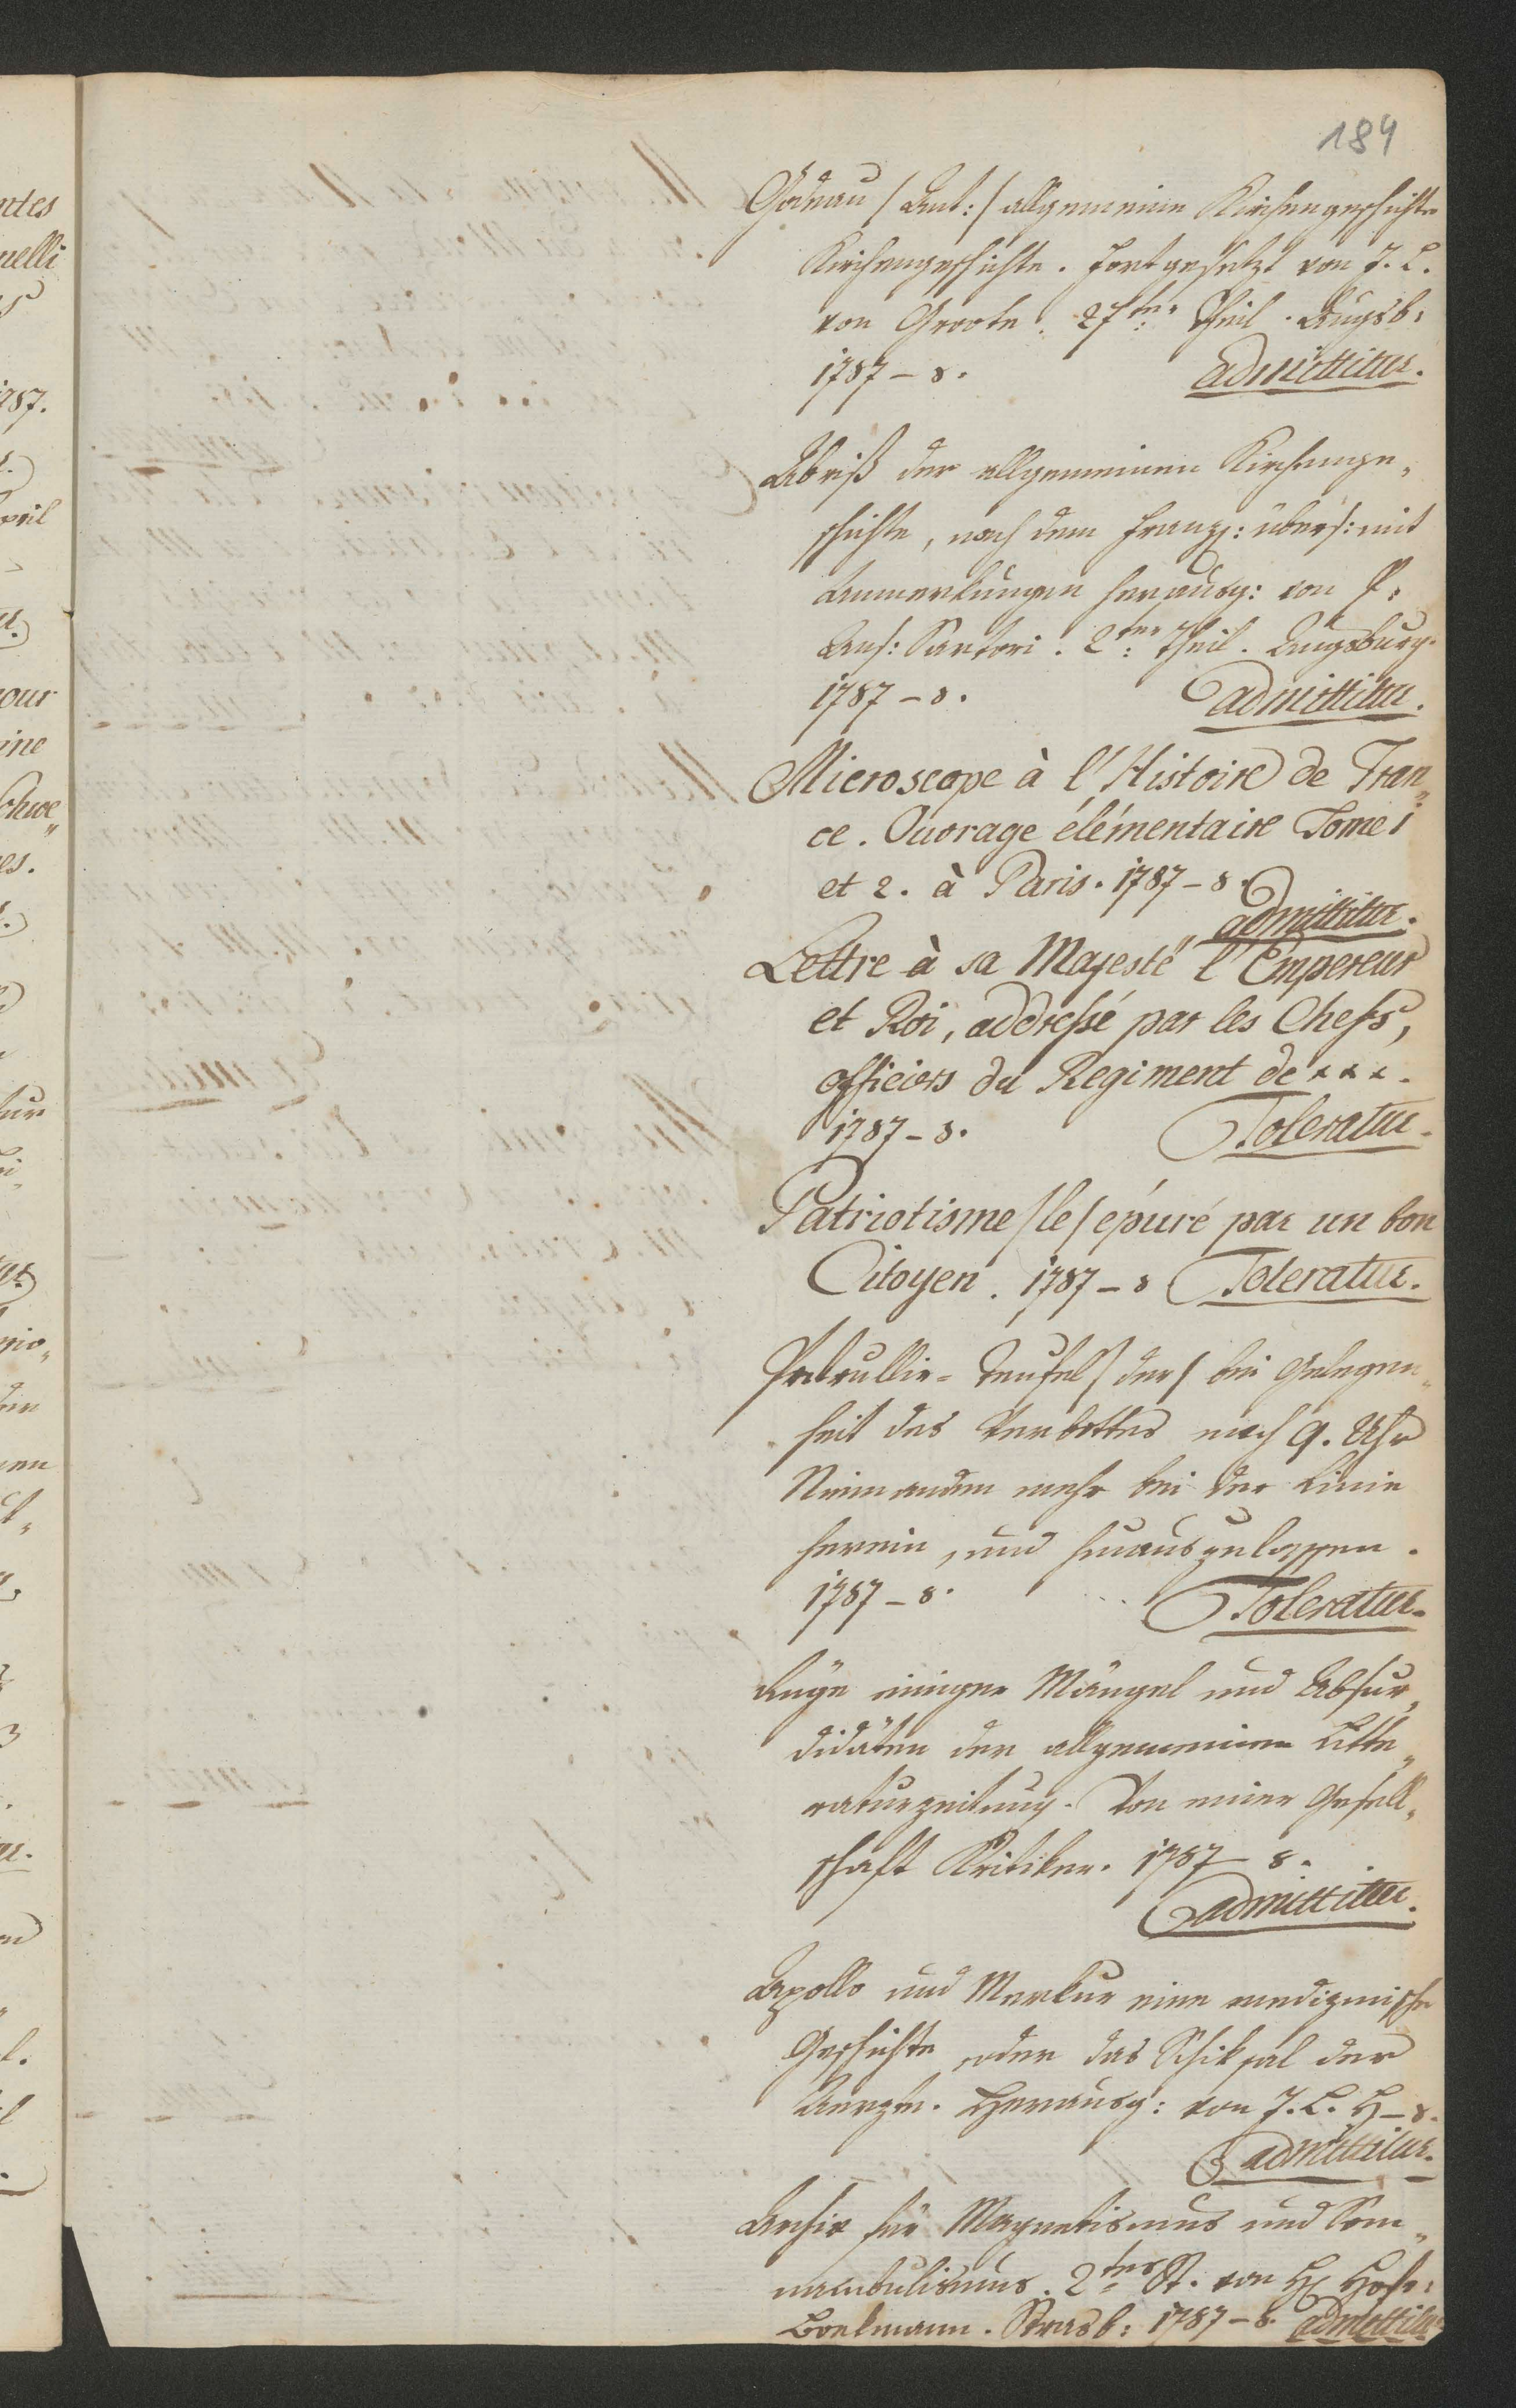 184
Godeau /Ant:/ allgemeine Kirchengeschichte
Kirchengeschichte. Fortgesetzt von J. L.
von Groote. 27ter Theil. Augsb:
1787 – 8. admittitur.
Abriß der allgemeinen Kirchenge„
schichte, nach dem Franz: übers: mit
Anmerkungen herausg: von P.
Ans: Sartori. 2ter Theil. Augsburg.
1787 – 8. admittitur.
Microscope à l'Histoire de Fran„
ce. Ouvrage élémentaire Tome 1
et 2. à Paris. 1787 – 8.
admittitur.
Lettre à sa Majesté l'Empereur
et Roi, addressé par les Chefs,
officiers du Regiment de xxx.
1787 – 8. Toleratur.
Patriotisme /le/ epúré par un bon
Citoyen. 1787 – 8 Toleratur.
Patrullie-Teufel /der/ bei Gelegen„
heit des Verbottes nach 9. Uhr
Niemanden mehr bei der Linie
herein, und hinauszulassen.
1787 – 8. Toleratur.
Rüge einiger Mängel und Absur„
didäten der allgemeinen Litte„
raturzeitung. Von einer Gesell„
schaft Kritiker. 1787 – 8.
admittitur.
Apollo und Merkur eine medizinische
Geschichte, oder das Schiksal der
Aerzte. Herausg: von J. L. H – 8.
admittitur.
Archiv für Magnetismus und Som„
nambulismus. 2tes St. von H Hofr:
Boekmann. Strasb: 1787 – 8. admittitur
ntes
uelli
787.
pril
our
ine
es.